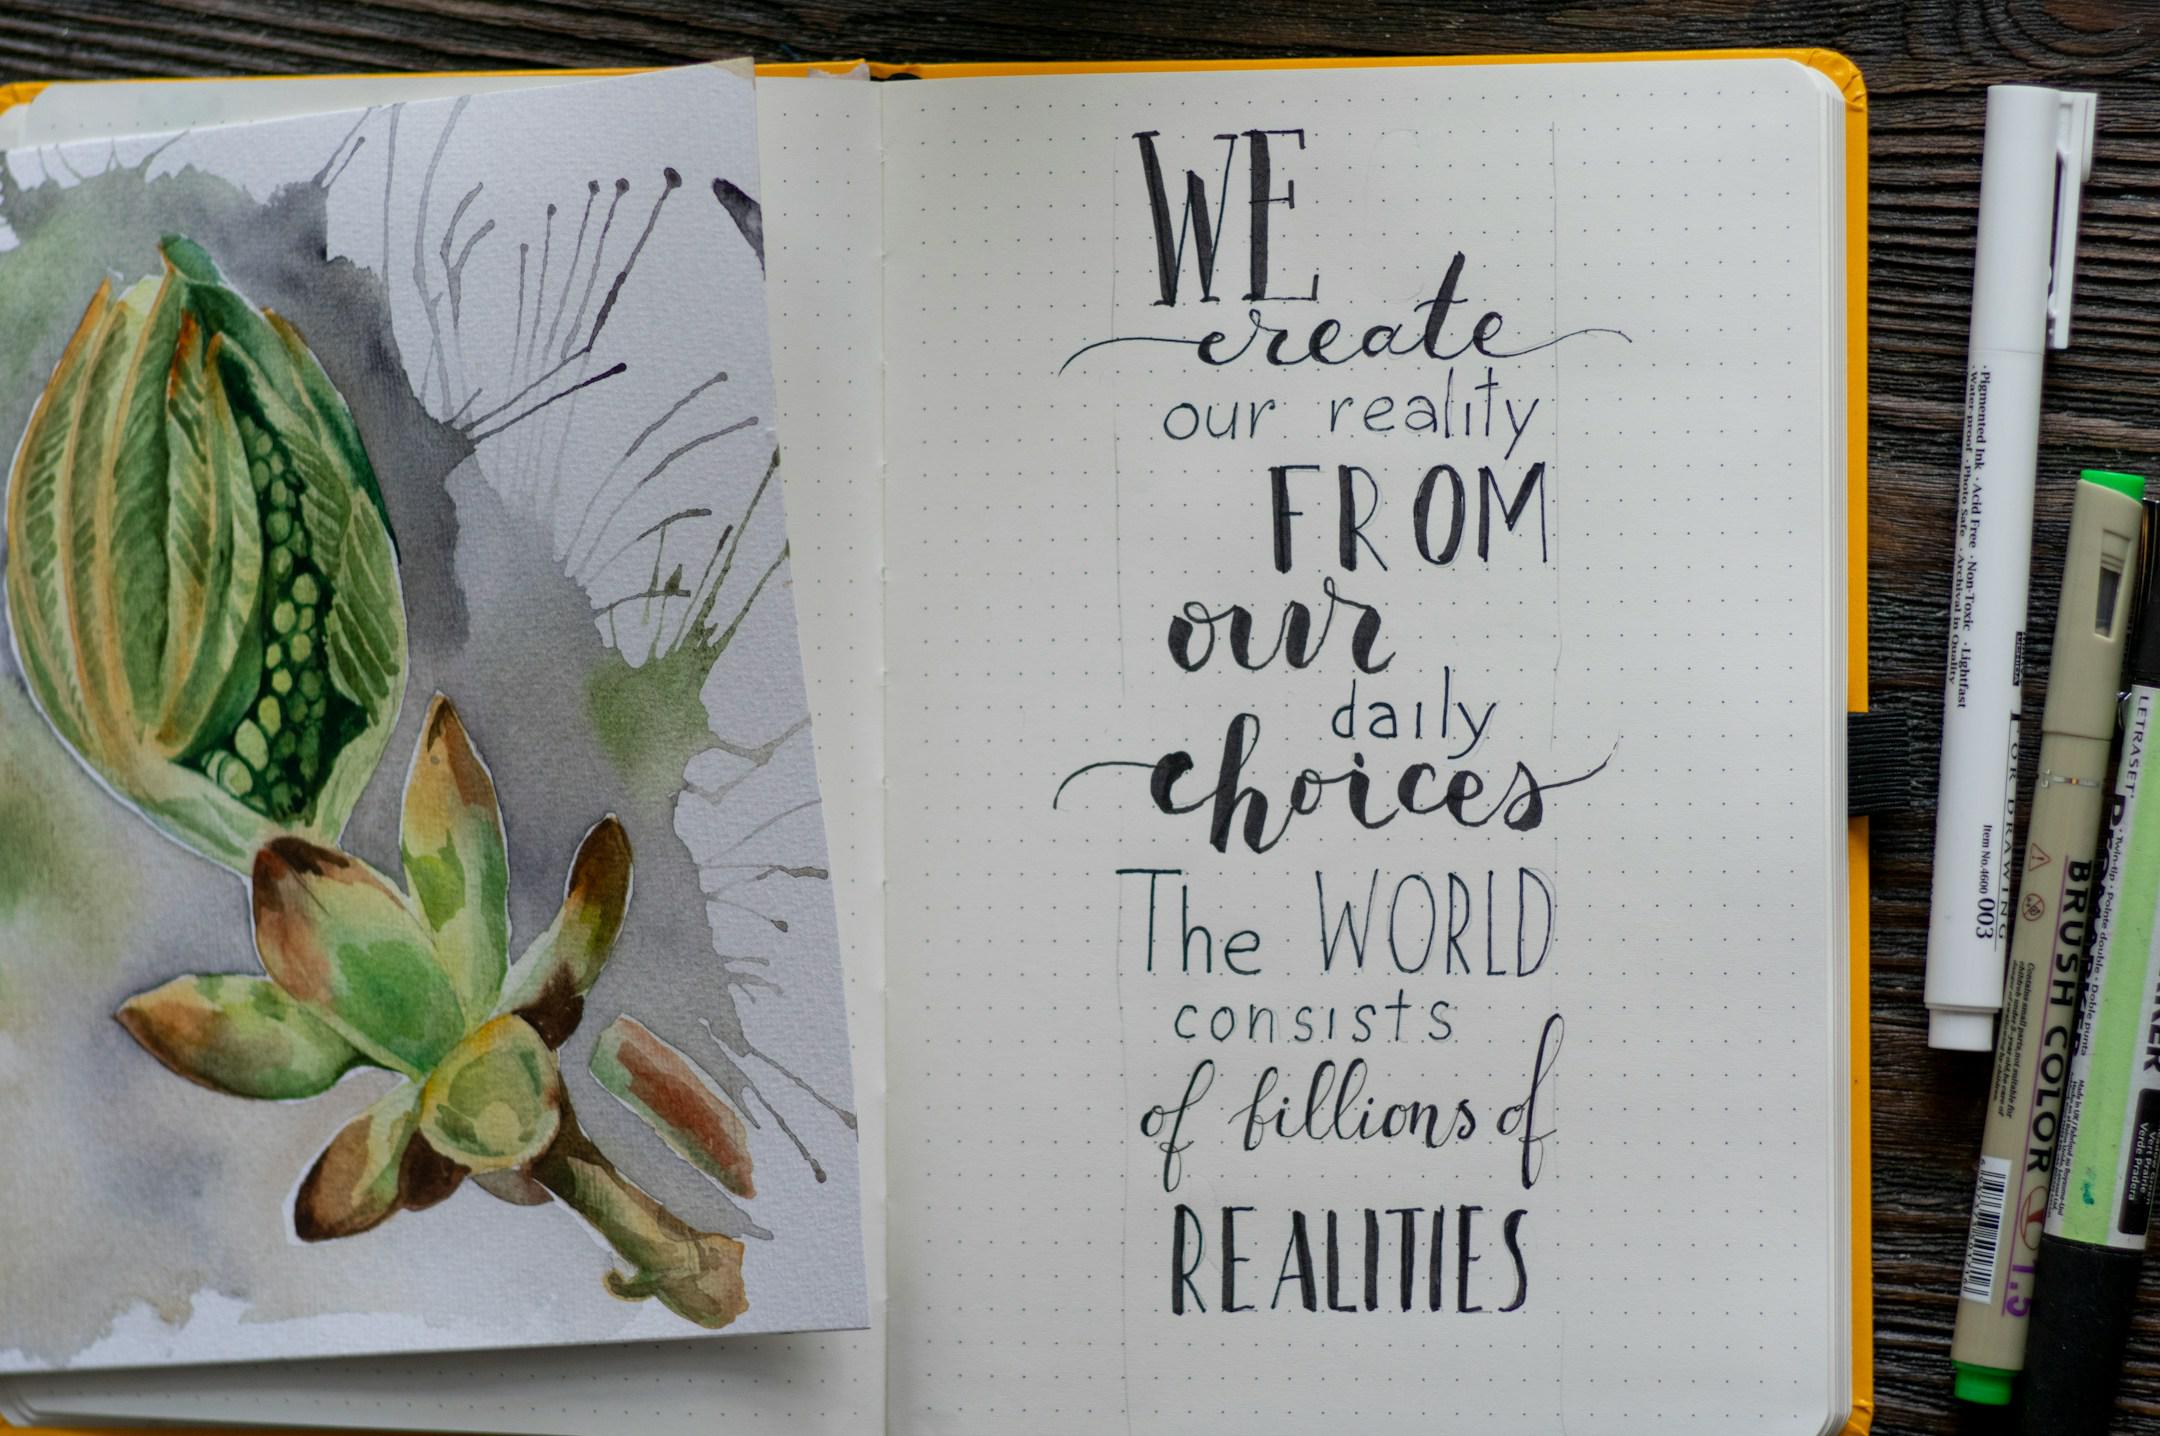 WE
create
our reality
FROM
our
daily
choices
The WORLD
consists
of billions of
REALITIES
· Pigmented Ink · Acid Free · Non-Toxic · Lightfast
· Water-proof · Photo Safe · Archival in Quality
FOR DRAWING
Item No.4600 003
BRUSH COLOR
1.5
LETRASET
Twin-tip · Pointe double · Doble punta
Vert Prairie
Verde Pradera